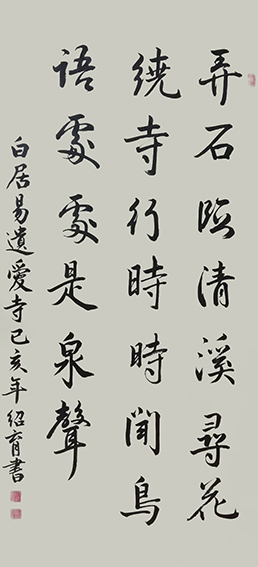 弄石臨清溪尋花
繞寺行時時聞鳥
語處處是泉聲
白居易遺愛寺己亥年紹育書